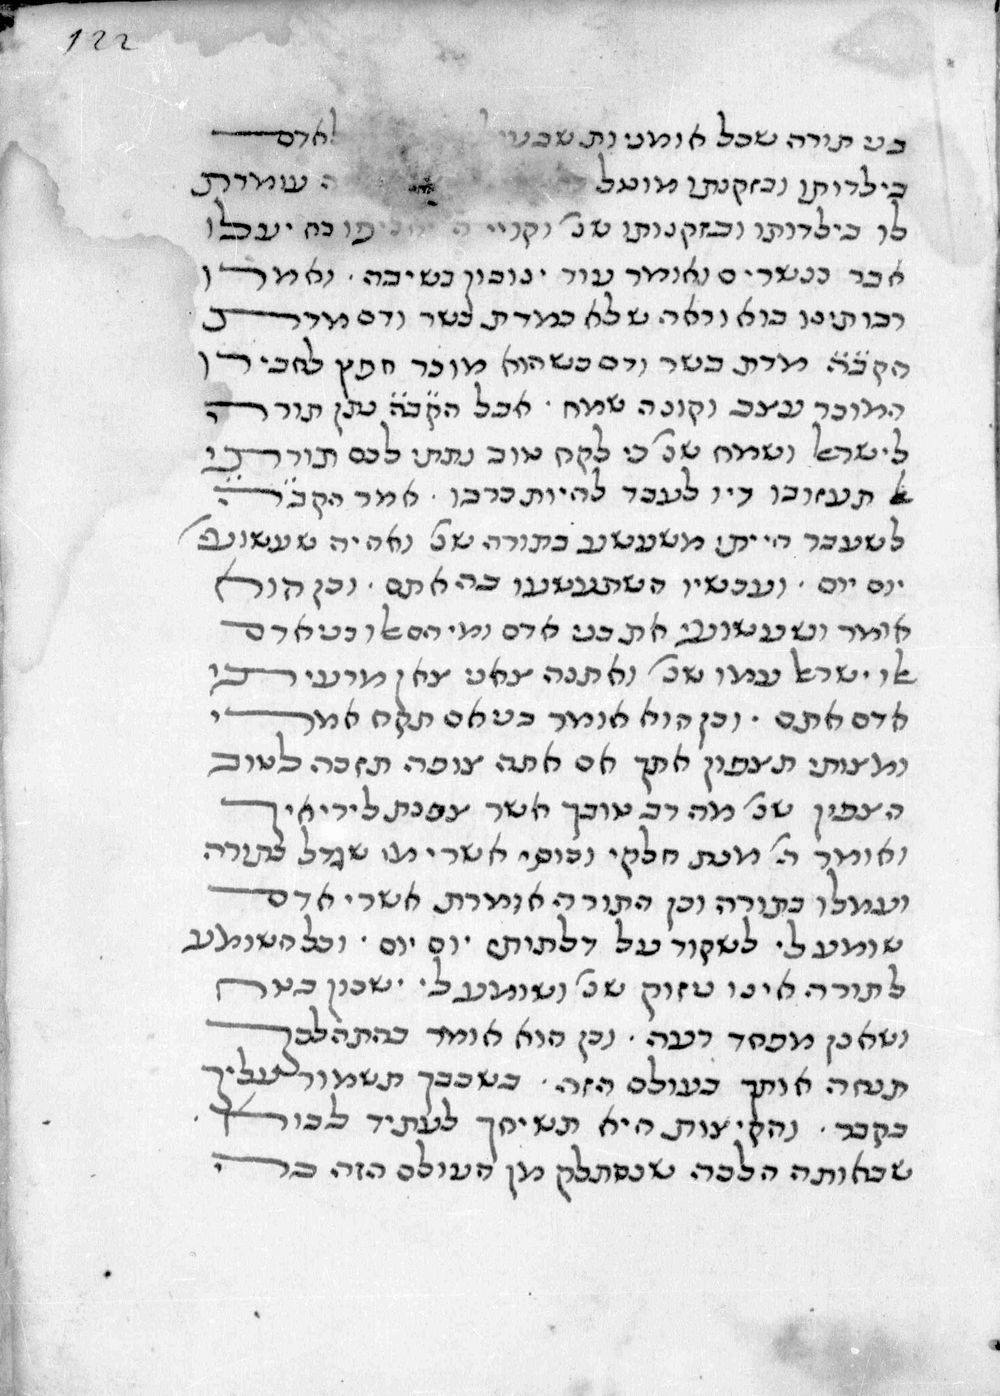 122
בני תורה שכל אומניות שבעול לאדם
בילדותו ובזקנתו מועל ה עומדת
לו בילדותו ובזקנותו שנ׳ וקויי ה יחליפו כח יעלו
אבר כנשרים ואומר עוד ינובון בשיבה. ואמרו
רבותינו בוא וראה שלא כמדת בשר ודם מדת
הקבה מדת בשר ודם כשהוא מוכר חפץ לחבירו
המוכר עצב וקונה שמח. אבל הקבה נתן תורה
לישראל ושמח שנ׳ כי לקח טוב נתתי לכם תורתי
אל תעזובו דיו לעבד להיות כרבו. אמר הקבה
לשעבר הייתי משעשע בתורה שנ׳ ואהיה שעשועי׳
יום יום. ועכשיו השתעשעו בה אתם. וכן הוא
אומר ושעשועי את בני אדם ומי הם אלו בני אדם
אלו ישראל עמו שנ׳ ואתנה צאני צאן מרעיתי
אדם אתם. וכן הוא אומר בני אם תקח אמרי
ומצותי תצפון אתך אם אתה צופה תזכה לטוב
הצפון שנ׳ מה רב טובך אשר צפנת ליריאיך
ואומר ה׳ מנת חלקי וכוסי אשרי מי שגדל בתורה
ועמלו בתורה וכן התורה אומרת אשרי אדם
שומע לי לשקוד על דלתותי יום יום. וכל השומע
לתורה אינו ניזוק שנ׳ ושומע לי ישכון בטח
ושאנן מפחד רעה. וכן הוא אומר בהתהלכך
תנחה אותך בעולם הזה. בשכבך תשמור עליך
בקבר. והקיצות היא תשיחך לעתיד לבוא.
שבאותה הלכה שנסתלק מן העולם הזה ברי